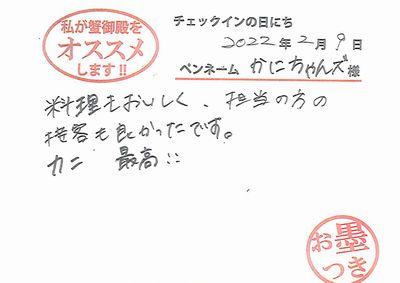 私が蟹御殿を
オススメ
します!!
チェックインの日にち
2022年2月9日
ペンネーム かにちゃんズ 様
料理もおいしく、担当の方の
接客も良かったです。
カニ 最高!!
お墨
つき